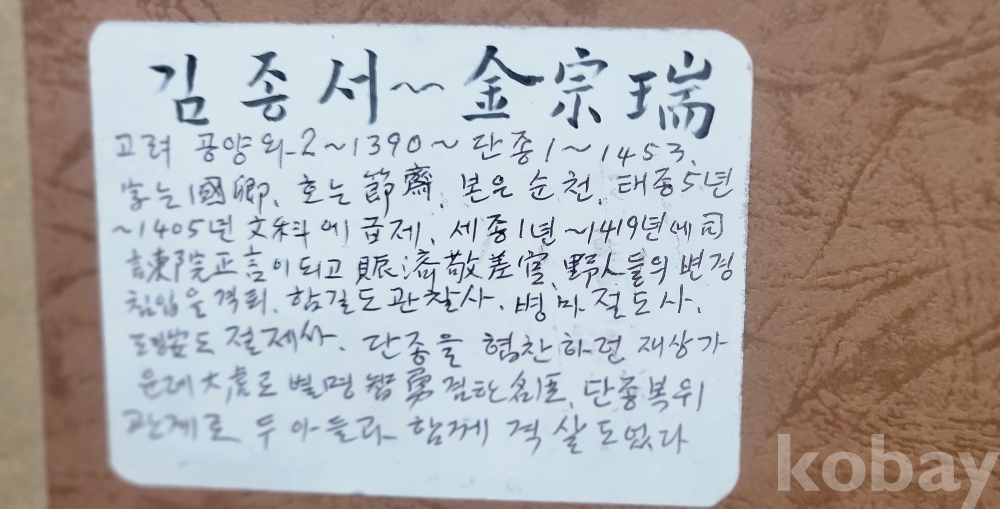 김종서~金宗瑞
고려 공양왕2~1390~단종1~1453.
字는 國卿, 호는 節齋, 본은 순천, 태종5년
~1405년 文科에 급제, 세종1년~1419년에 司
諫院正言이 되고 賑濟敬差官, 野人들의 변경
침입을 격퇴. 함길도 관찰사. 병마절도사.
도 절제사. 단종을 협찬하던 재상가
운데 大虎로 별명 智勇겸한 名臣, 단종복위
관계로 두 아들과 함께 격살 되었다
kobay